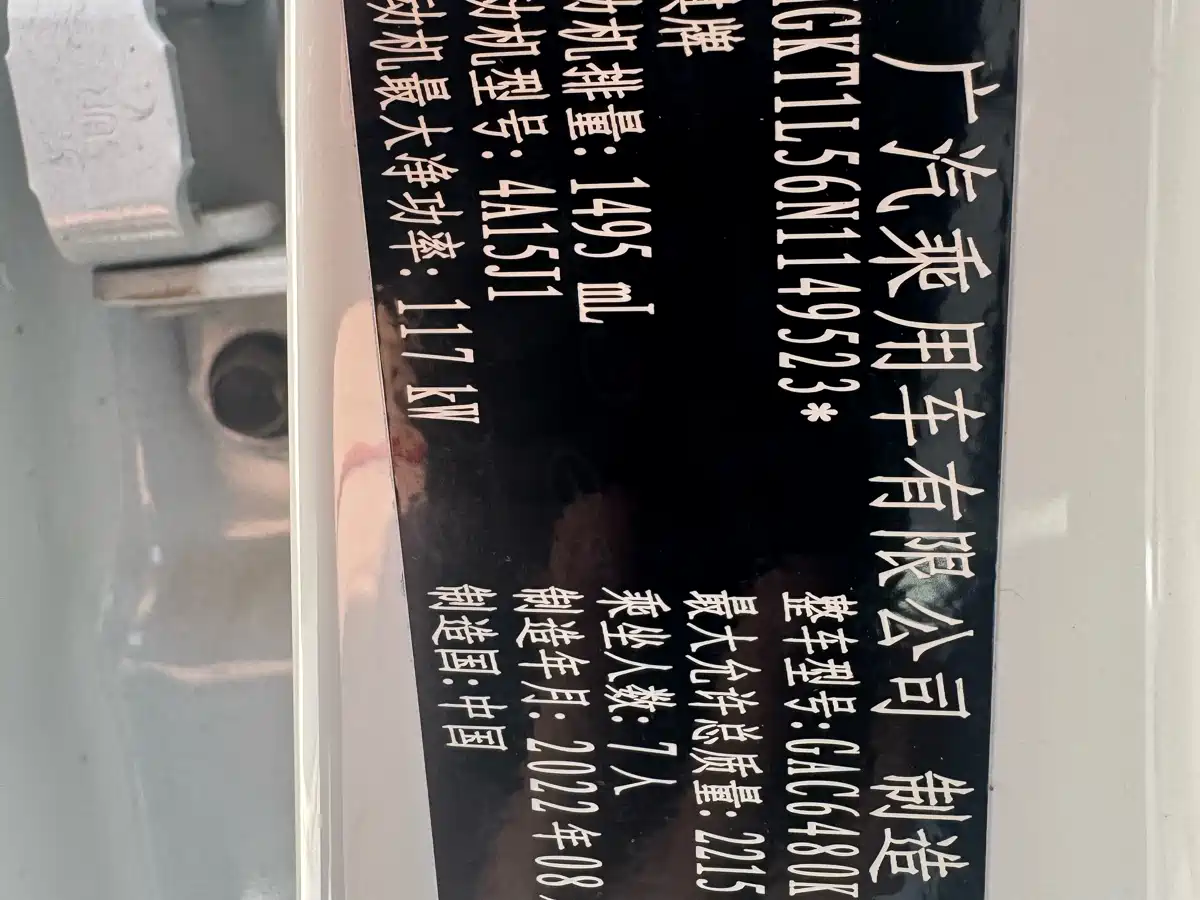 广汽乘用车有限公司 制造
GKT1L56N1149523*
整车型号:GAC6480K
牌
最大允许总质量:2215
机排量:1495 mL
乘坐人数:7人
机型号:4A15J1
制造年月:2022年08
动机最大净功率:117 kW
制造国:中国